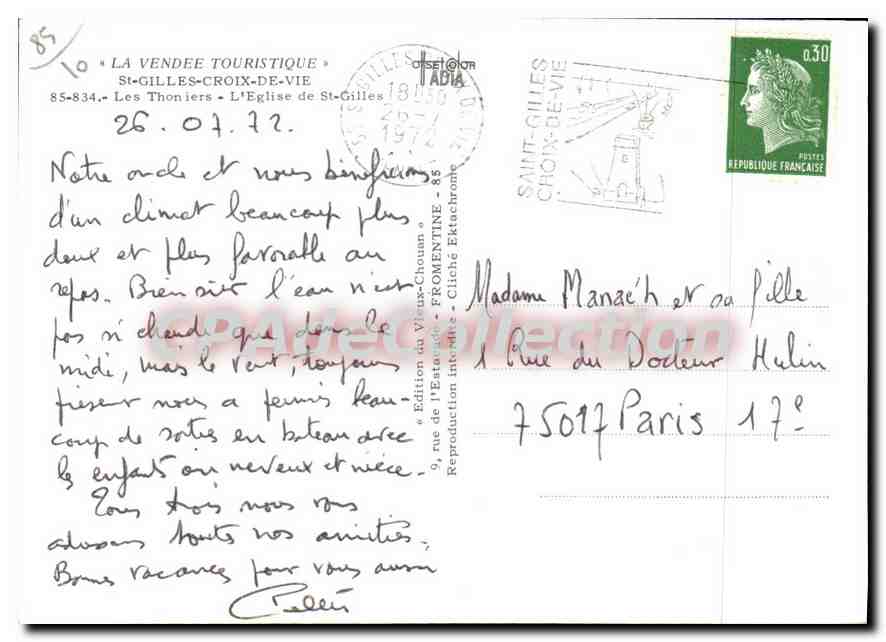 85
10
« LA VENDEE TOURISTIQUE »
St-GILLES-CROIX-DE-VIE
85-834.- Les Thoniers - L'Eglise de St-Gilles
26.07.72.
Notre oncle et nous bénéficions
d'un climat beaucoup plus
doux et plus favorable au
repos. Bien sûr l'eau n'est
pas si chaude que dans le
midi, mais le vent, toujours
présent nous a permis beau-
coup de sorties en bateau avec
les enfants ou neveux et nièce.
Tous trois nous vous
adressons toutes nos amitiés.
Bonnes vacances pour vous aussi
« Edition du Vieux-Chouan »
9, rue de l'Estacade - FROMENTINE - 85
Reproduction interdite - Cliché Ektachrome
18H30
26-7
1972
SAINT-GILLES
CROIX-DE-VIE
0,30
POSTES
REPUBLIQUE FRANÇAISE
Madame Manac'h et sa fille
1 Rue du Docteur Hulin
75017 Paris 17e
CPAdeCollection